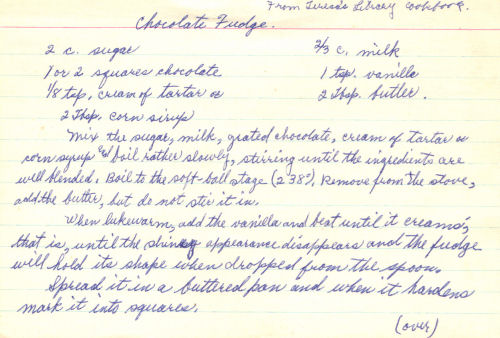 From Teresa's Library Cookbook.
Chocolate Fudge.
2 c. sugar 2/3 c. milk
1 or 2 squares chocolate 1 tsp. vanilla
1/8 tsp. cream of tartar or 2 Tbsp. butter.
2 Tbsp. corn sirup
Mix the sugar, milk, grated chocolate, cream of tartar or
corn syrup & boil rather slowly, stirring until the ingredients are
well blended. Boil to the soft-ball stage (238°). Remove from the stove,
add the butter, but do not stir it in.
When lukewarm, add the vanilla and beat until it creams;
that is, until the shiny appearance disappears and the fudge
will hold its shape when dropped from the spoon.
Spread it in a buttered pan and when it hardens
mark it into squares.
(over)